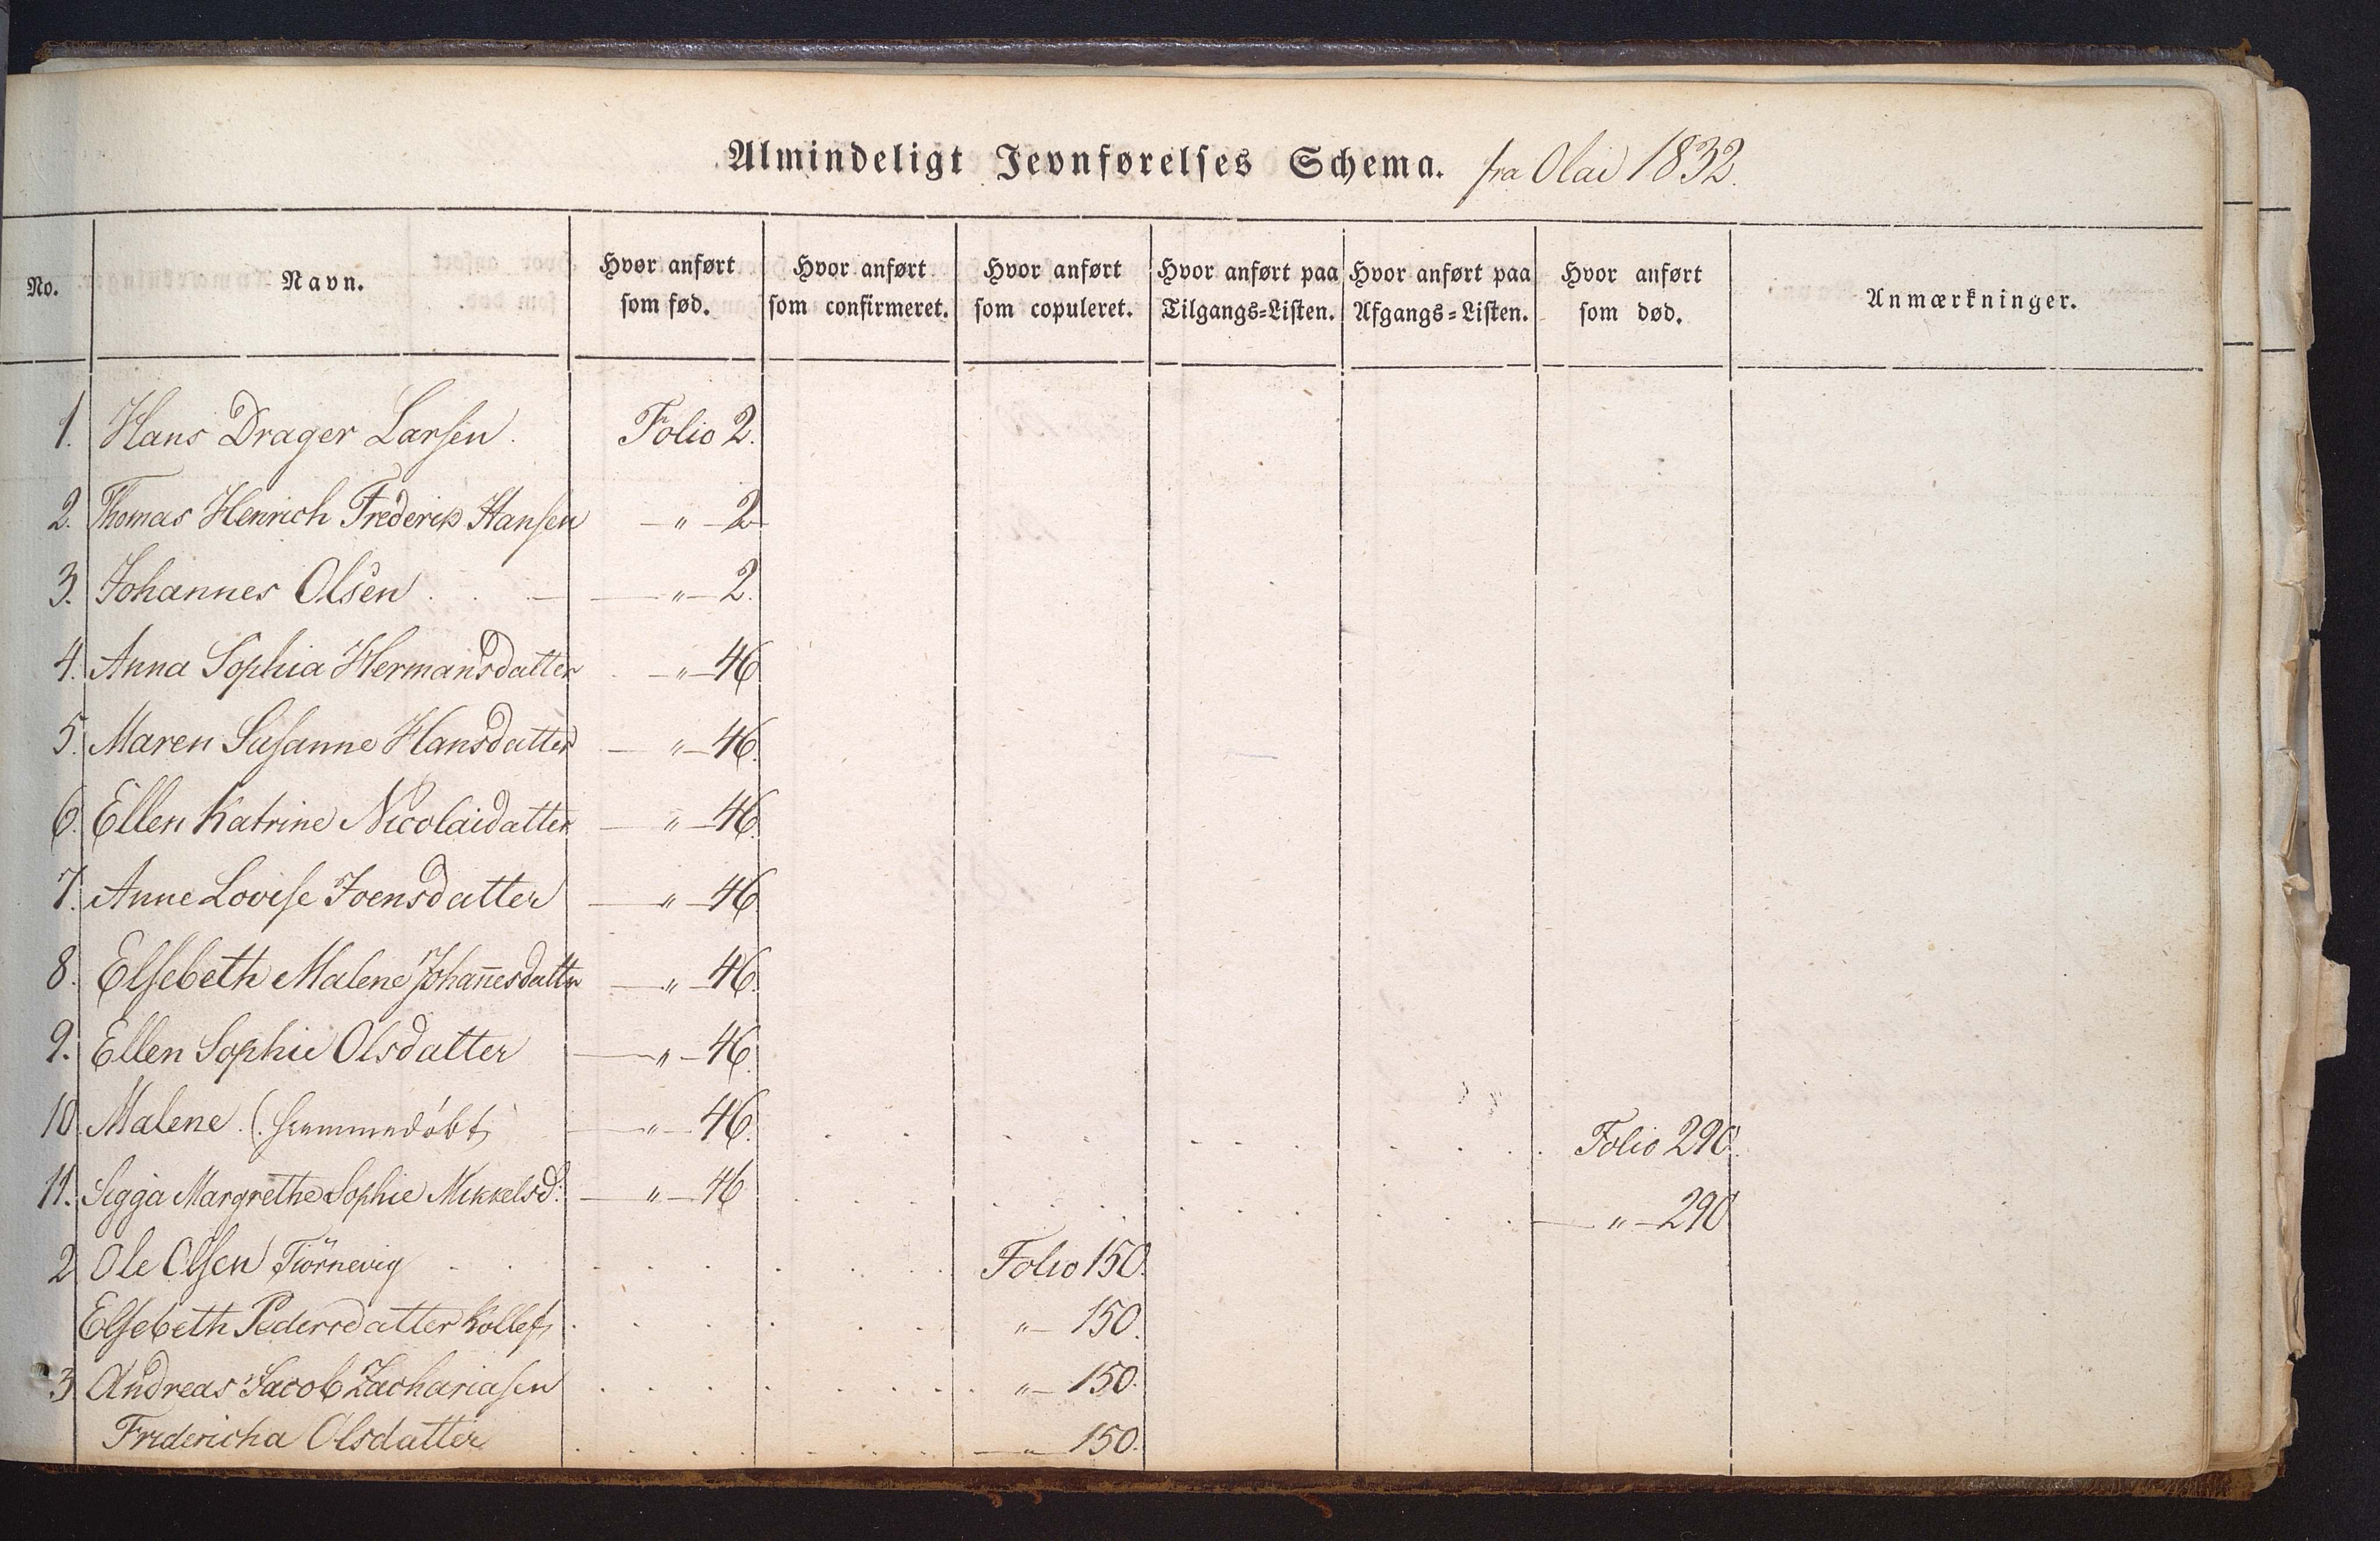 Almindeligt Jevnførelses Schema. fra Olai 1832.
No. Navn. Hvor anført som fød. Hvor anført som confirmeret. Hvor anført som copuleret. Hvor anført paa Tilgangs=Listen. Hvor anført paa Afgangs=Listen. Hvor anført som død. Anmærkninger.
1. Hans Drager Larsen. Folio 2.
2. Thomas Henrich Frederik Hansen — " — 2
3. Johannes Olsen — " — 2.
4. Anna Sophia Hermansdatter — " — 46
5. Maren Susanne Hansdatter — " — 46.
6. Ellen Katrine Nicolaidatter — " — 46.
7. Anne Lovise Joensdatter — " — 46.
8. Elsebeth Malene Johan̄esdatter — " — 46.
9. Ellen Sophie Olsdatter — " — 46.
10. Malene. (hiemmedøbt) — " — 46. Folio 290.
11. Sigga Margrethe Sophie Mikkelsd: — " — 46 — " — 290
2 Ole Olsen Tiörnevig Folio 150.
Elsebeth Pedersdatter " — 150.
3 Andreas Jacob Zachariasen " — 150.
Fridericha Olsdatter — " — 150.